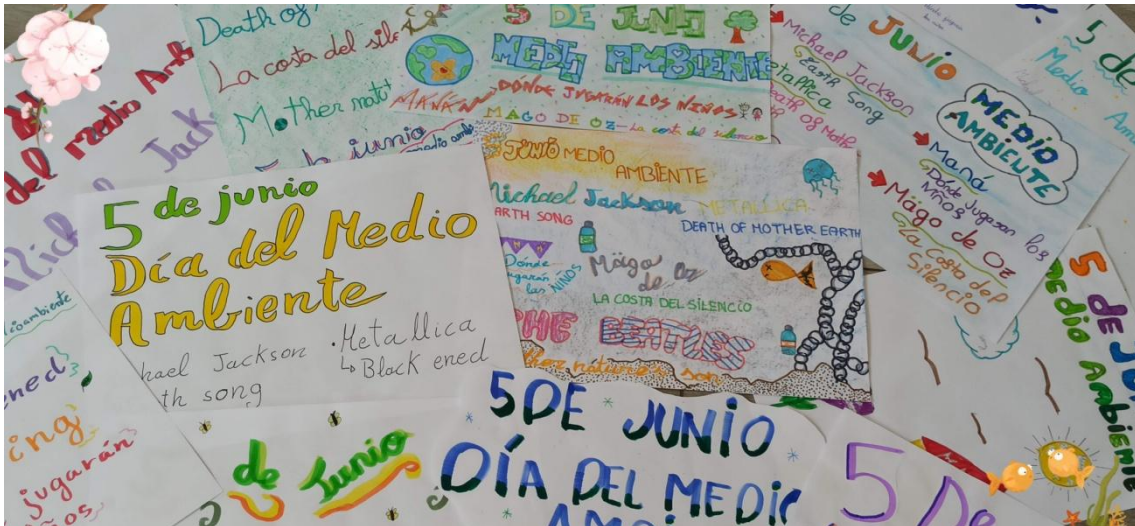 del medio Amb
Jack
Death of
La costa del sile
Mother nat
5 DE JUNIO
MEDIO AMBIENTE
MANÁ
DÓNDE JUGARÁN LOS NIÑOS
MAGO DE OZ-La costa del silencio
de JUNIO
Michael Jackson
Earth song
Metallica
Death of Moth
MEDIO
AMBIENTE
Maná
Dónde Jugaran los
Niños
Mägo de Oz
La Costa del
Silencio
5 de
Medio
Am
5 de junio
Día del Medio
Ambiente
hael Jackson
th song
Metallica
Blackened
JUNIO MEDIO
AMBIENTE
Michael Jackson METALLICA
EARTH SONG
DEATH OF MOTHER EARTH
Dónde
jugarán
las NIÑOS
Mägo de Oz
LA COSTA DEL SILENCIO
THE BEATLES
ther nature's son
medioambiente
ened
ing
jugarán
ños
de Junio
5 DE JUNIO
DÍA DEL MEDIO
AMB
5 De
5 DE JU
MEDIO AMBIENTE